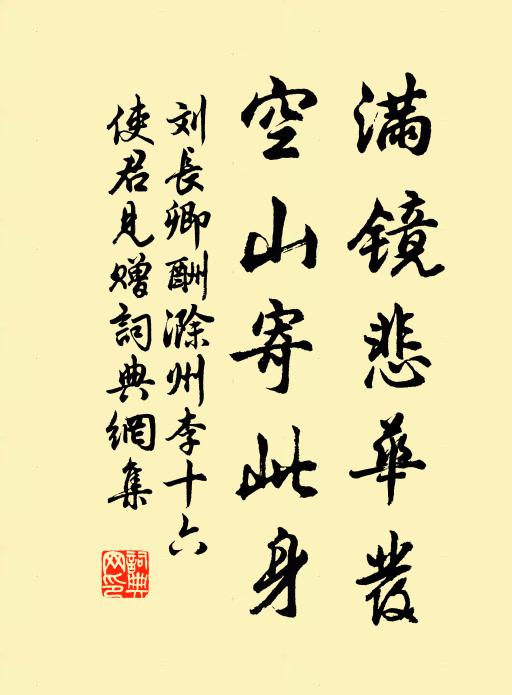 满镜悲華發
空山寄此身
刘長卿酬滁州李十六
使君見贈詞典網集
詞典网印